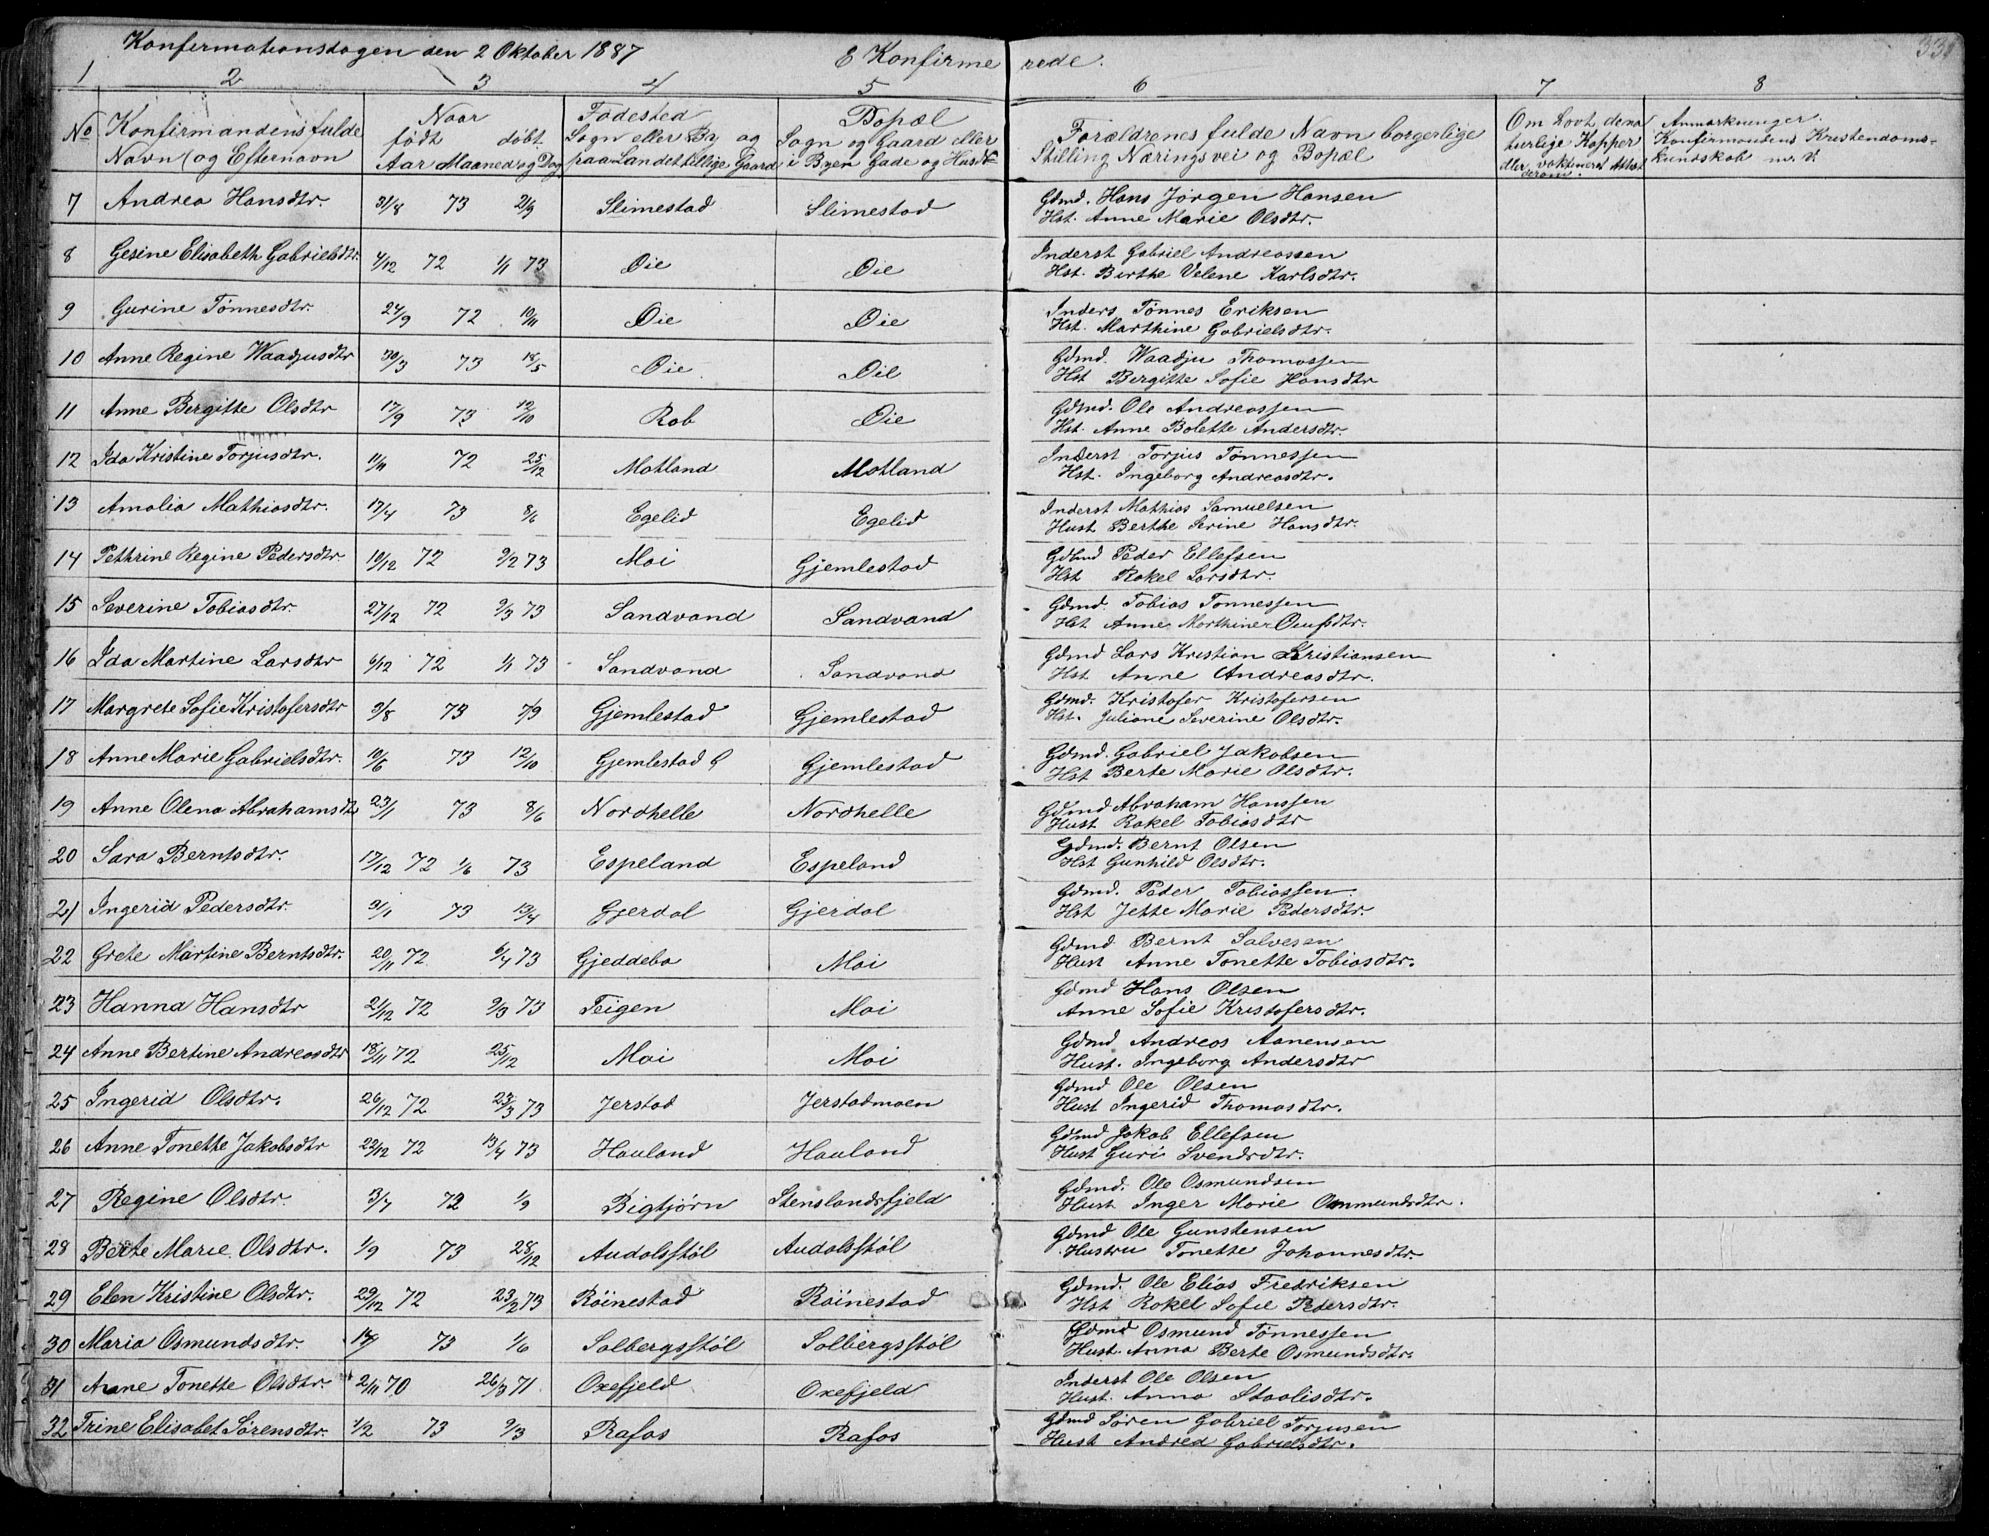 Konfirmationsdagen den 2 Oktober 1887 E Konfirmerede.
1 2 3 4 5 6 7 8
No Konfirmandens fulde Navn (og Efternavn
Naar født døbt. Aar Maaned og Dag
Fødested Sogn eller By og paa Landet tillige Gaard
Bopæl Sogn og Gaard eller i Byen Gade og Hus No
Forældrenes fulde Navn borgerlige Stilling Næringsvei og Bopæl
Om havt de naturlige Kopper eller vaktineret Attest derom.
Anmærkninger. Konfirmandens Kristendomskundskab m. v.
7 Andrea Hansdtr. 31/8 73 21/9 Slimestad Slimestad Gdmd. Hans Jørgen Hansen
Hst. Anne Marie Olsdtr.
8 Gesine Elisabeth Gabrielsdtr. 4/12 72 1/1 73 Øie Øie Inderst Gabriel Andreassen
Hst. Birthe Velene Karlsdtr.
9 Gurine Tønnesdtr. 24/9 72 10/11 Øie Øie Inders Tønnes Eriksen
Hst. Marthine Gabrielsdtr.
10 Anne Regine Waadjusdtr 30/3 73 18/5 Øie Øie Gdmd. Waadju Thomassen
Hst Bergitte Sofie Hansdtr
11 Anne Bergitte Olsdtr 17/9 73 12/10 Rob Øie Gdmd. Ole Andreassen
Hst. Anne Bolette Andersdtr.
12 Ida Kristine Torjusdtr. 11/11 72 25/12 Motland Motland Inderst Torjus Tønnessen
Hst. Ingeborg Andreasdtr.
13 Amalia Mathiasdtr. 17/4 73 8/6 Egelid Egelid Inderst Mathias Samuelsen
Hust Berthe Serine Hansdtr.
14 Pethrine Regine Pedersdtr. 19/12 72 9/2 73 Moi Gjemlestad Gdmd Peder Ellefsen
Hst Rakel Larsdtr.
15 Severine Tobiasdtr. 27/12 72 9/3 73 Sandvand Sandvand Gdmd. Tobias Tønnessen
Hst Anne Marthine Omfsdtr.
16 Ida Martine Larsdtr 6/12 72 1/1 73 Sandvand Sandvand Gdmd Lars Kristian Kristiansen
Hst Anne Andreasdtr.
17 Margrete Sofie Kristofersdtr 9/8 73 7/9 Gjemlestad Gjemlestad Gdmd. Kristofer Kristofersen
Hst. Juliane Severine Olsdtr.
18 Anne Marie Gabrielsdtr. 10/6 73 12/10 Gjemlestad Gjemlestad Gdmd. Gabriel Jakobsen
Hst Berte Marie Olsdtr.
19 Anne Olena Abrahamsdtr 23/1 73 8/6 Nordhelle Nordhelle Gdmd Abraham Hanssen
Hust Rakel Tobiasdtr
20 Sara Berntsdtr. 17/12 72 1/6 73 Espeland Espeland Gdmd. Bernt Olsen
Hst Gunhild Olsdtr.
21 Ingerid Pedersdtr. 9/1 73 13/4 Gjerdal Gjerdal Gdmd. Peder Tobiassen
Hst Jette Marie Pedersdtr.
22 Grete Martine Berntsdtr. 20/11 72 6/4 73 Gjeddebo Moi Gdmd Bernt Salvesen
Hust Anne Tonette Tobiasdtr.
23 Hanna Hansdtr 21/12 72 9/3 73 Teigen Moi Gdmd Hans Olsen
Anne Sofie Kristofersdtr.
24 Anne Bertine Andreasdtr 18/11 72 25/12 Moi Moi Gdmd Andreas Aanensen
Hust. Ingeborg Andersdtr
25 Ingerid Olsdtr. 26/12 72 23/3 73 Jerstad Jerstadmoen Gdmd Ole Olsen
Hust Ingerid Thomasdtr.
26 Anne Tonette Jakobsdtr 22/12 72 13/4 73 Hauland Hauland Gdmd Jakob Ellefsen
Hust Guri Svendsdtr.
27 Regine Olsdtr. 3/7 72 1/9 Bigtjørn Stenslandsfjeld Gdmd. Ole Osmundsen
Hust Inger Marie Ommundsdtr.
28 Berte Marie Olsdtr. 1/9 73 28/12 Audalsstøl Audalsstøl Gdmd Ole Gunstensen
Hustru Tonette Johannesdtr
29 Elen Kristine Olsdtr. 29/12 72 23/2 73 Røinestad Røinestad Gdmd. Ole Elias Fredriksen
Hst Rakel Sofie Pedersdtr.
30 Maria Osmundsdtr. 73 1/6 Solbergsstøl Solbergsstøl Gdmd Osmund Tønnessen
Hust. Anna Berte Osmundsdtr.
31 Anne Tonette Olsdtr. 2/11 70 26/3 71 Oxefjeld Oxefjeld Inderst Ole Olsen
Hust. Anna Staalisdtr.
32 Trine Elisabet Sørensdtr. 1/2 73 9/3 Rafos Rafos Gdmd Søren Gabriel Torjusen
Hust Andrea Gabrielsdtr.